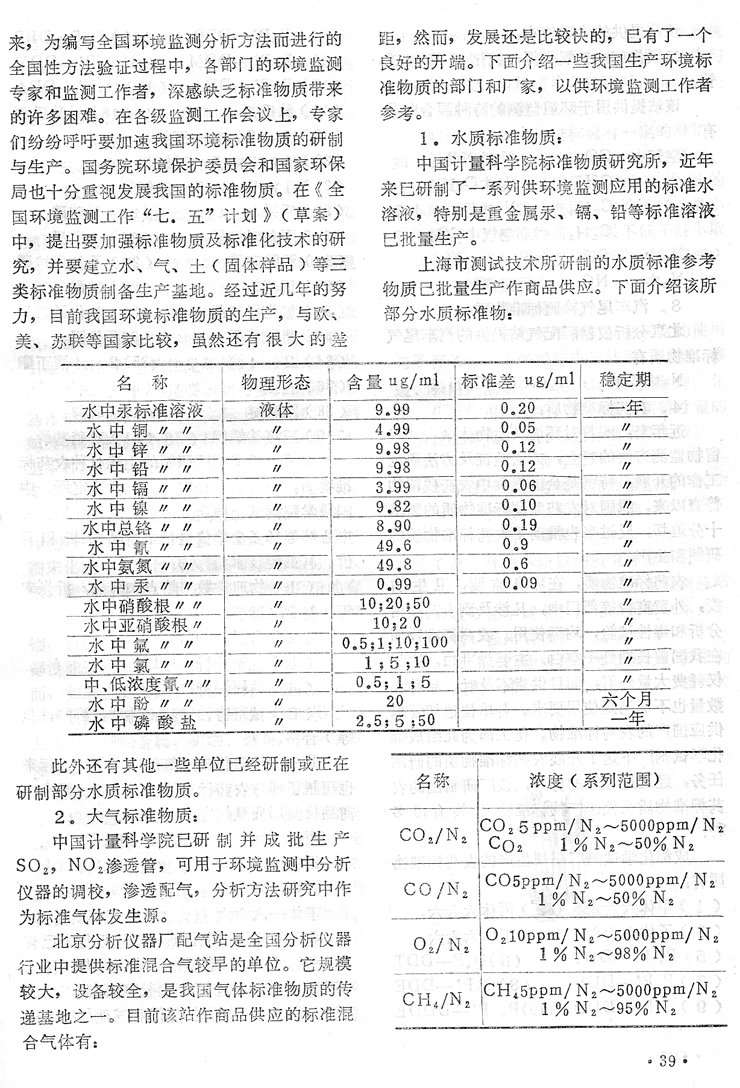 来，为编写全国环境监测分析方法而进行的
全国性方法验证过程中，各部门的环境监测
专家和监测工作者，深感缺乏标准物质带来
的许多困难。在各级监测工作会议上，专家
们纷纷呼吁要加速我国环境标准物质的研制
与生产。国务院环境保护委员会和国家环保
局也十分重视发展我国的标准物质。在《全
国环境监测工作“七．五”计划》（草案）
中，提出要加强标准物质及标准化技术的研
究，并要建立水、气、土（固体样品）等三
类标准物质制备生产基地。经过近几年的努
力，目前我国环境标准物质的生产，与欧、
美、苏联等国家比较，虽然还有很大的差
距，然而，发展还是比较快的，已有了一个
良好的开端。下面介绍一些我国生产环境标
准物质的部门和厂家，以供环境监测工作者
参考。
1．水质标准物质：
中国计量科学院标准物质研究所，近年
来已研制了一系列供环境监测应用的标准水
溶液，特别是重金属汞、镉、铅等标准溶液
已批量生产。
上海市测试技术所研制的水质标准参考
物质已批量生产作商品供应。下面介绍该所
部分水质标准物：
名 称 物理形态 含量 ug/ml 标准差 ug/ml 稳定期
水中汞标准溶液 液体 9.99 0.20 一年
水中铜〃〃 〃 4.99 0.05 〃
水中锌〃〃 〃 9.98 0.12 〃
水中铅〃〃 〃 9.98 0.12 〃
水中镉〃〃 〃 3.99 0.06 〃
水中镍〃〃 〃 9.82 0.10 〃
水中总铬〃〃 〃 8.90 0.19 〃
水中氰〃〃 〃 49.6 0.9 〃
水中氨氮〃〃 〃 49.8 0.6 〃
水中汞〃〃 〃 0.99 0.09 〃
水中硝酸根〃〃 〃 10;20;50 〃
水中亚硝酸根〃 〃 10;20 〃
水中氟〃〃 〃 0.5;1;10;100 〃
水中氯〃〃 〃 1;5;10 〃
中、低浓度氰〃〃 〃 0.5;1;5 〃
水中酚〃〃 〃 20 六个月
水中磷酸盐 〃 2.5;5;50 一年
此外还有其他一些单位已经研制或正在
研制部分水质标准物质。
2．大气标准物质：
中国计量科学院已研制并成批生产
SO₂，NO₂渗透管，可用于环境监测中分析
仪器的调校，渗透配气，分析方法研究中作
为标准气体发生源。
北京分析仪器厂配气站是全国分析仪器
行业中提供标准混合气较早的单位。它规模
较大，设备较全，是我国气体标准物质的传
递基地之一。目前该站作商品供应的标准混
合气体有：
名称 浓度（系列范围）
CO₂/N₂ CO₂5ppm/N₂～5000ppm/N₂
CO₂ 1%N₂～50%N₂
CO/N₂ CO5ppm/N₂～5000ppm/N₂
1%N₂～50%N₂
O₂/N₂ O₂10ppm/N₂～5000ppm/N₂
1%N₂～98%N₂
CH₄/N₂ CH₄5ppm/N₂～5000ppm/N₂
1%N₂～95%N₂
·39·